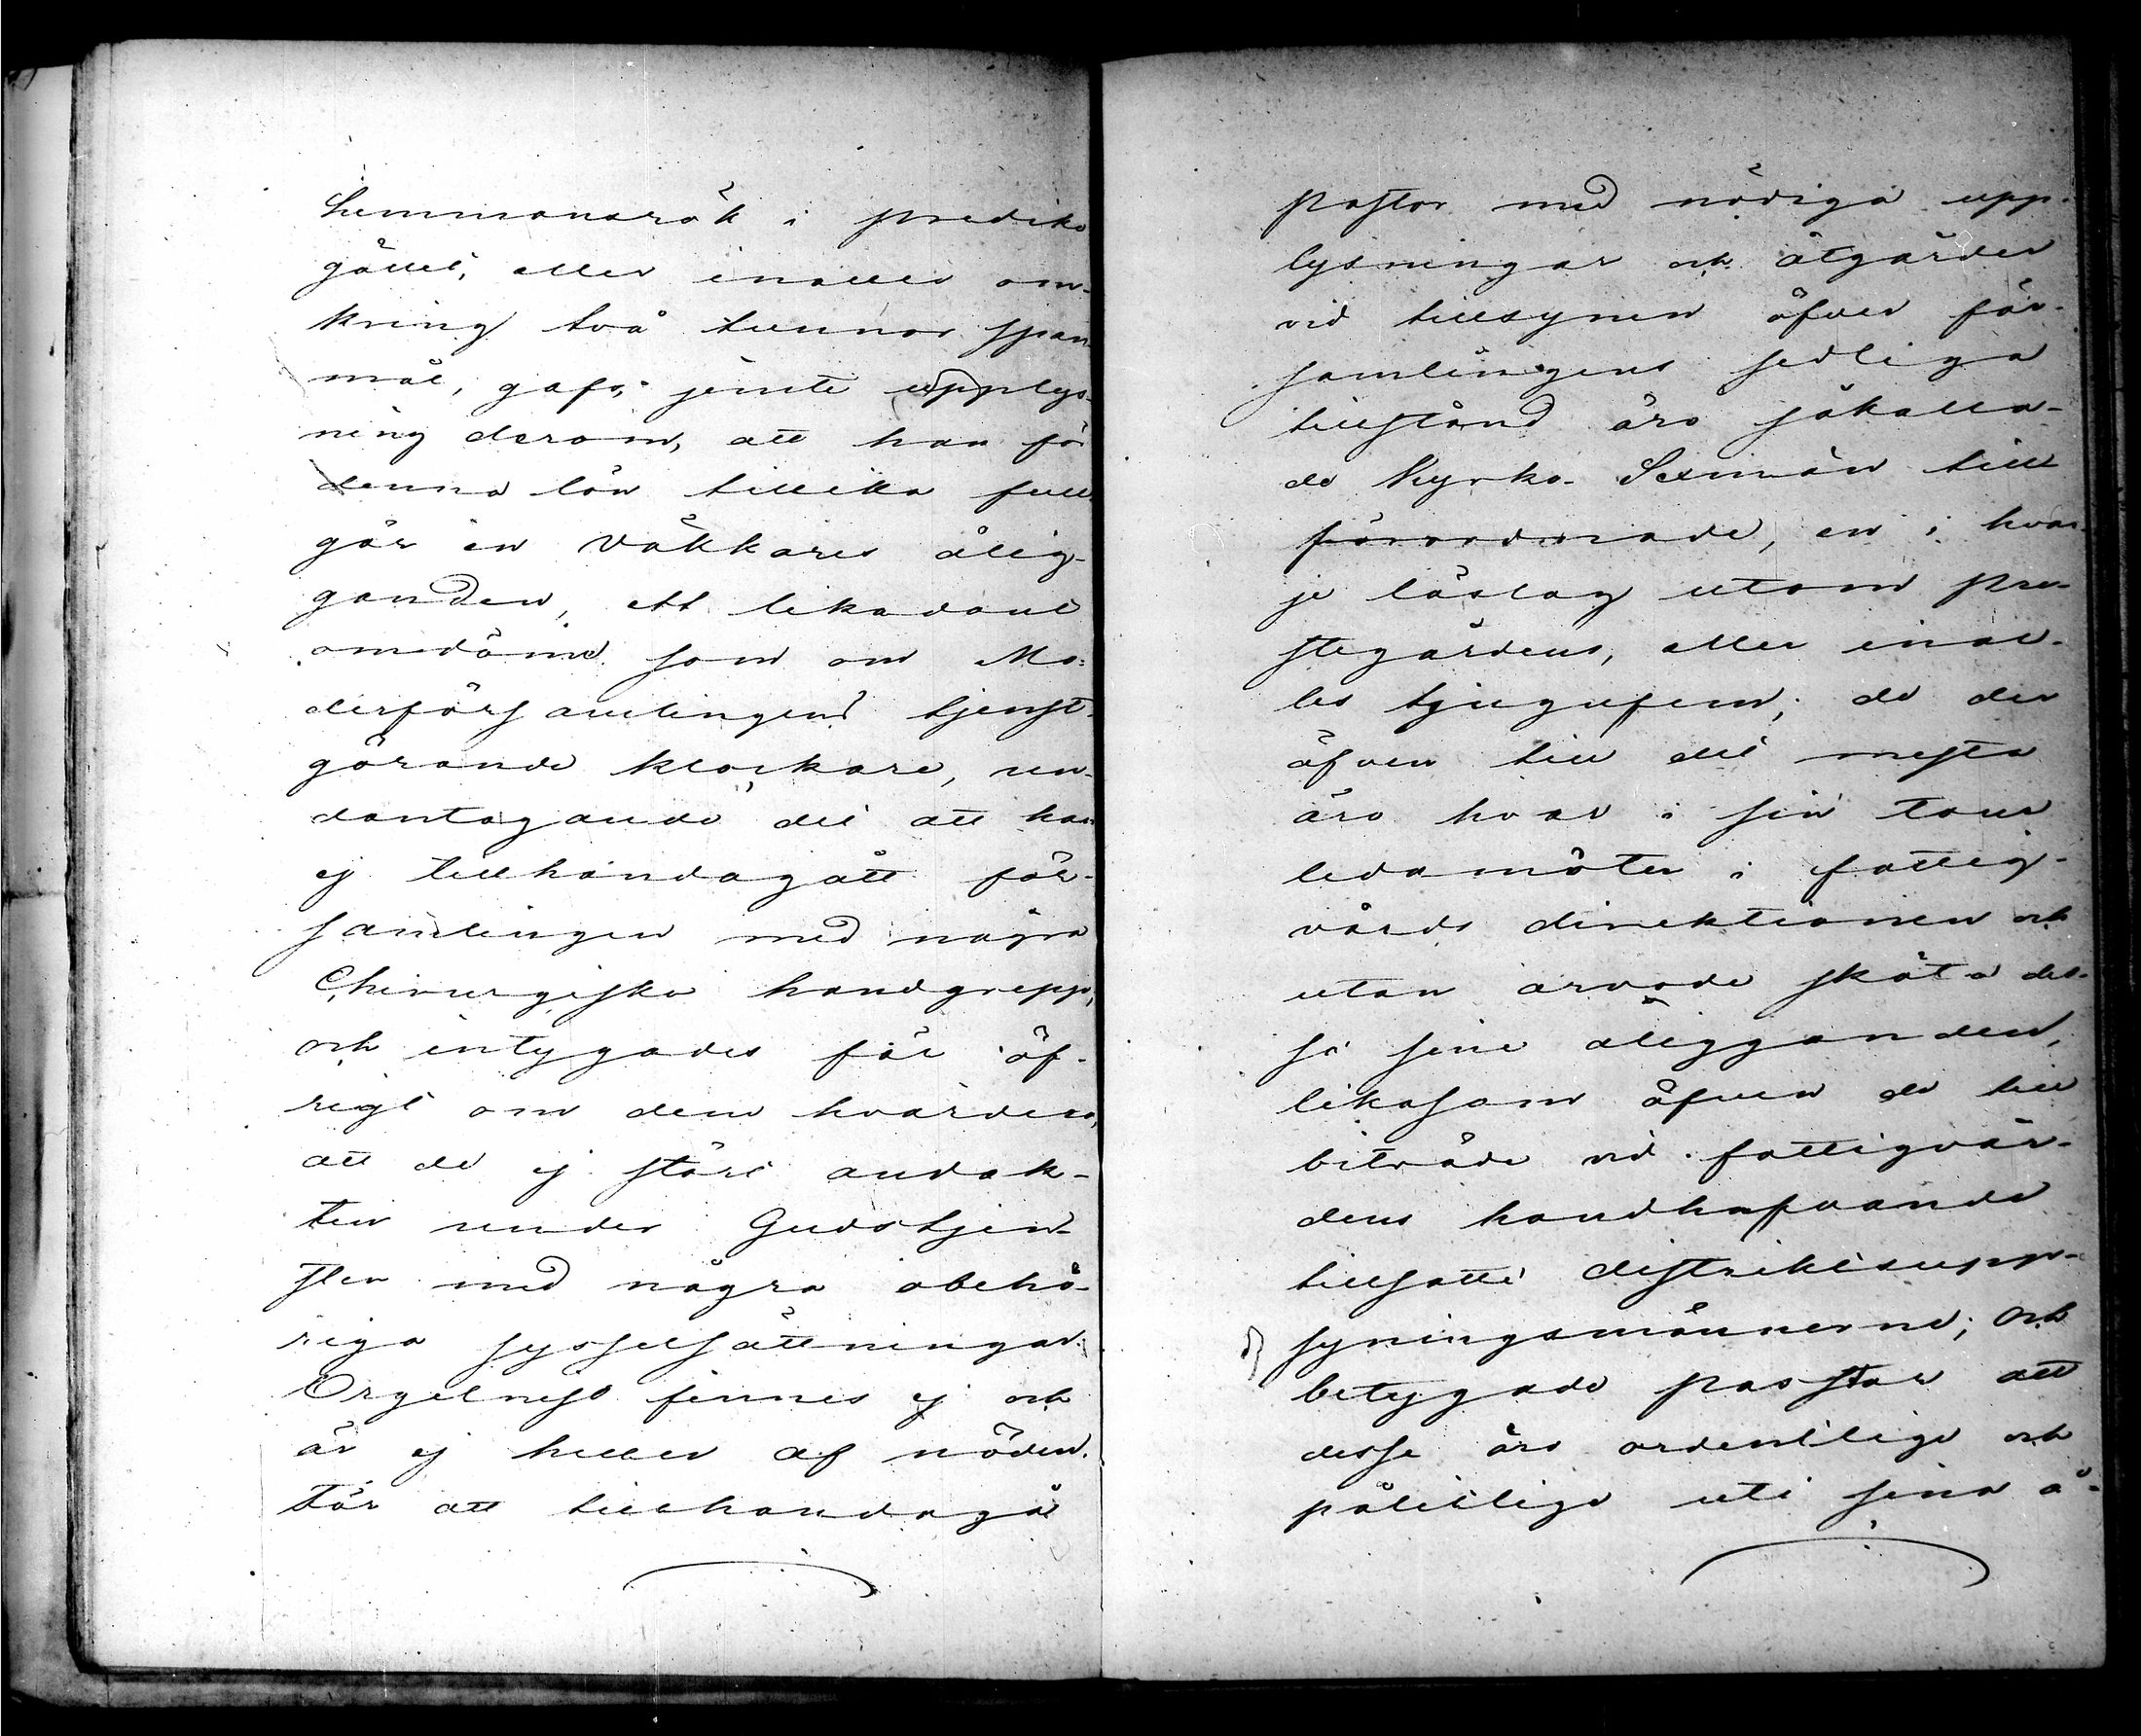 hemmansrök i prediko
gället, eller inalles om-
kring två tunnor span-
mål, gafs, jemte upplys-
ning derom, att han för
denna lön tillika full-
gör en Väkkares ålig-
ganden, ett likadant
omdöme som om Mo-
derförsamlingens tjenst-
görande klockare, un-
dantagande det att han
ej tillhandagått för-
samlingen med några
Chirurgiska handgrepp,
och intygades för öf-
rigt om dem hvardera,
att de ej störa andak-
ten under Gudstjen-
sten med några obehö-
riga sysselsättningar.
Orgelnist finnes ej och
är ej heller af nöden.
För att tillhandagå
pastor med nödiga upp-
lysningar och åtgärder
vid tillsynen öfver för-
samlingens sedliga
tillstånd äro såkalla-
de Kyrko-Sexmän till
förordnade, en i hvar-
je läslag utom pre-
stegårdens, eller inal-
les tjugufem; de der
äfven till det mesta
äro hvar i sin tour
ledamöter i fattig-
vårds direktionen och
utan arvode sköta des-
sa sine åligganden,
likasom äfven de till
biträde vid fattigvår-
dens handhafvande
tillsatte distriktsupp-
syningsmännerne; och
betygade pastor att
desse äro ordentlige och
pålitlige uti sina å-